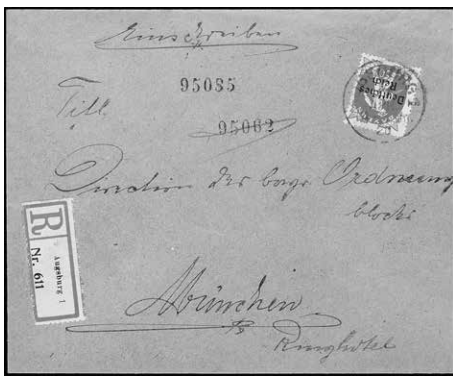 Einschreiben
95085
Titl.
95062
Direction der bayr. Ordnung
blocks
R
Augsburg 1
Nr. 611
München
Ringhotel
Deutsches
Reich